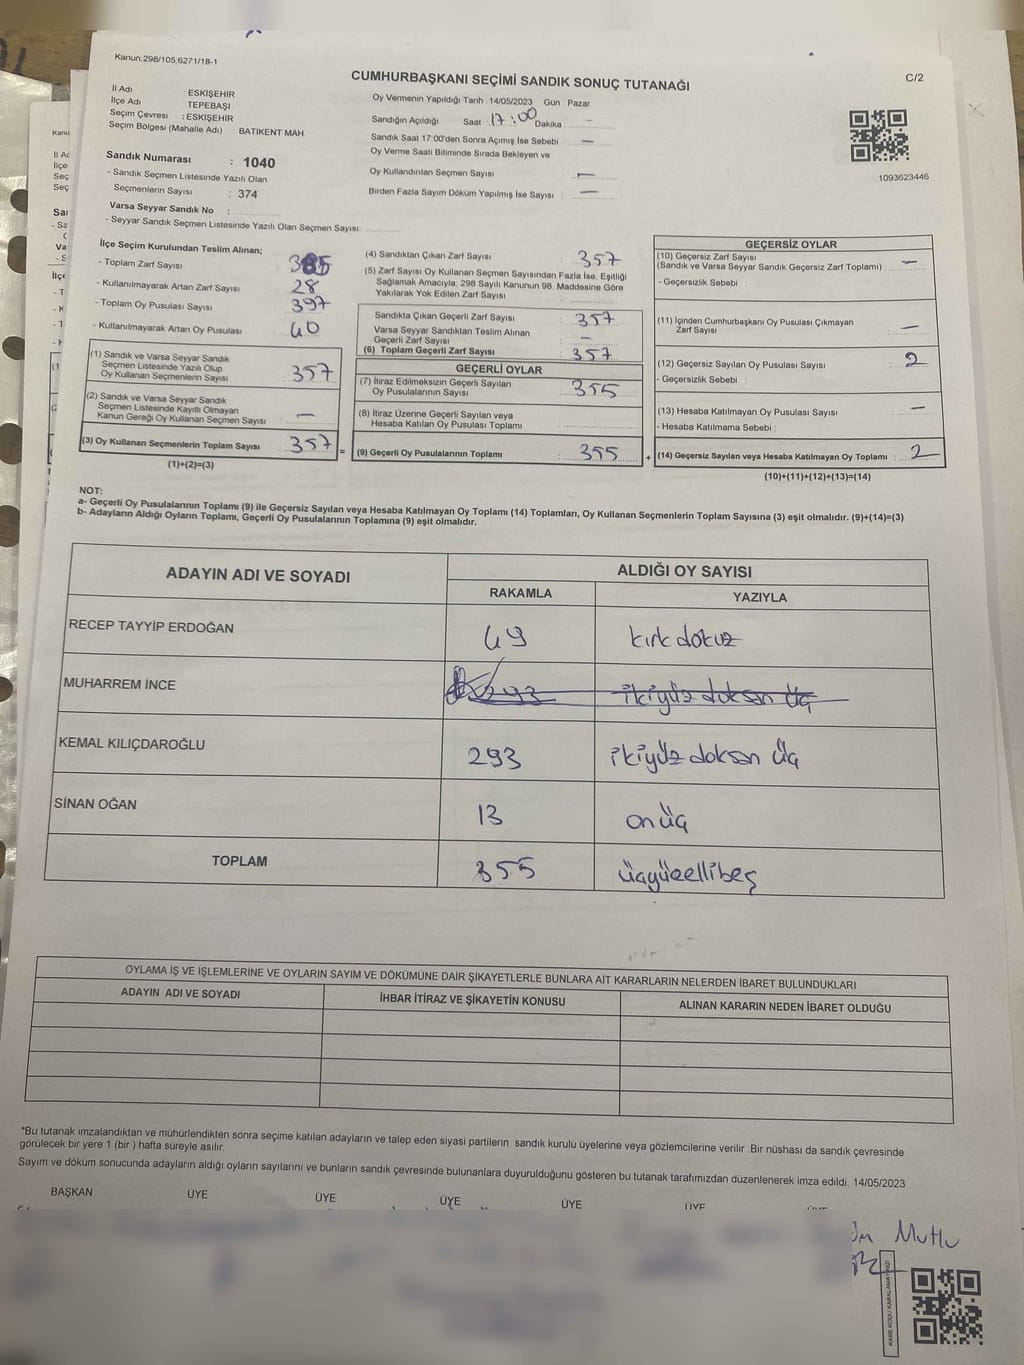 Kanun;298/105,6271/18-1
CUMHURBAŞKANI SEÇİMİ SANDIK SONUÇ TUTANAĞI
C/2
İl Adı : ESKİŞEHİR
İlçe Adı TEPEBAŞI
Seçim Çevresi : ESKİŞEHİR
Seçim Bölgesi (Mahalle Adı) : BATIKENT MAH.
Oy Vermenin Yapıldığı Tarih : 14/05/2023 Gün : Pazar
Sandığın Açıldığı Saat 17:00 Dakika —
Sandık Saat 17:00'den Sonra Açımış İse Sebebi —
Oy Verme Saati Bitiminde Sırada Bekleyen ve
Oy Kullandırılan Seçmen Sayısı —
Birden Fazla Sayım Döküm Yapılmış İse Sayısı —
1093623446
Sandık Numarası : 1040
- Sandık Seçmen Listesinde Yazılı Olan
Seçmenlerin Sayısı : 374
Varsa Seyyar Sandık No :
- Seyyar Sandık Seçmen Listesinde Yazılı Olan Seçmen Sayısı:
İlçe Seçim Kurulundan Teslim Alınan;
- Toplam Zarf Sayısı 385
- Kullanılmayarak Artan Zarf Sayısı 28
- Toplam Oy Pusulası Sayısı 397
- Kullanılmayarak Artan Oy Pusulası 40
(1) Sandık ve Varsa Seyyar Sandık
Seçmen Listesinde Yazılı Olup
Oy Kullanan Seçmenlerin Sayısı 357
(2) Sandık ve Varsa Seyyar Sandık
Seçmen Listesinde Kayıtlı Olmayan
Kanun Gereği Oy Kullanan Seçmen Sayısı —
(3) Oy Kullanan Seçmenlerin Toplam Sayısı 357 =
(1)+(2)=(3)
(4) Sandıktan Çıkan Zarf Sayısı 357
(5) Zarf Sayısı Oy Kullanan Seçmen Sayısından Fazla İse, Eşitliği
Sağlamak Amacıyla; 298 Sayılı Kanunun 98. Maddesine Göre
Yakılarak Yok Edilen Zarf Sayısı
Sandıkta Çıkan Geçerli Zarf Sayısı 357
Varsa Seyyar Sandıktan Teslim Alınan
Geçerli Zarf Sayısı —
(6) Toplam Geçerli Zarf Sayısı 357
GEÇERLİ OYLAR
(7) İtiraz Edilmeksizin Geçerli Sayılan
Oy Pusulalarının Sayısı 355
(8) İtiraz Üzerine Geçerli Sayılan veya
Hesaba Katılan Oy Pusulası Toplamı
(9) Geçerli Oy Pusulalarının Toplamı 355 +
GEÇERSİZ OYLAR
(10) Geçersiz Zarf Sayısı
(Sandık ve Varsa Seyyar Sandık Geçersiz Zarf Toplamı) : —
- Geçersizlik Sebebi
(11) İçinden Cumhurbaşkanı Oy Pusulası Çıkmayan
Zarf Sayısı : —
(12) Geçersiz Sayılan Oy Pusulası Sayısı : 2
- Geçersizlik Sebebi :
(13) Hesaba Katılmayan Oy Pusulası Sayısı —
- Hesaba Katılmama Sebebi :
(14) Geçersiz Sayılan veya Hesaba Katılmayan Oy Toplamı : 2
(10)+(11)+(12)+(13)=(14)
NOT:
a- Geçerli Oy Pusulalarının Toplamı (9) ile Geçersiz Sayılan veya Hesaba Katılmayan Oy Toplamı (14) Toplamları, Oy Kullanan Seçmenlerin Toplam Sayısına (3) eşit olmalıdır. (9)+(14)=(3)
b- Adayların Aldığı Oyların Toplamı, Geçerli Oy Pusulalarının Toplamına (9) eşit olmalıdır.
ADAYIN ADI VE SOYADI ALDIĞI OY SAYISI
RAKAMLA YAZIYLA
RECEP TAYYİP ERDOĞAN 49 kırk dokuz
MUHARREM İNCE 293 ikiyüz doksan üç
KEMAL KILIÇDAROĞLU 293 ikiyüz doksan üç
SİNAN OĞAN 13 on üç
TOPLAM 355 üçyüzellibeş
OYLAMA İŞ VE İŞLEMLERİNE VE OYLARIN SAYIM VE DÖKÜMÜNE DAİR ŞİKAYETLERLE BUNLARA AİT KARARLARIN NELERDEN İBARET BULUNDUKLARI
ADAYIN ADI VE SOYADI İHBAR İTİRAZ VE ŞİKAYETİN KONUSU ALINAN KARARIN NEDEN İBARET OLDUĞU
*Bu tutanak imzalandıktan ve mühürlendikten sonra seçime katılan adayların ve talep eden siyasi partilerin sandık kurulu üyelerine veya gözlemcilerine verilir .Bir nüshası da sandık çevresinde
görülecek bir yere 1 (bir ) hafta süreyle asılır.
Sayım ve döküm sonucunda adayların aldığı oyların sayılarını ve bunların sandık çevresinde bulunanlara duyurulduğunu gösteren bu tutanak tarafımızdan düzenlenerek imza edildi. 14/05/2023
BAŞKAN ÜYE ÜYE ÜYE ÜYE ÜYE
Mutlu